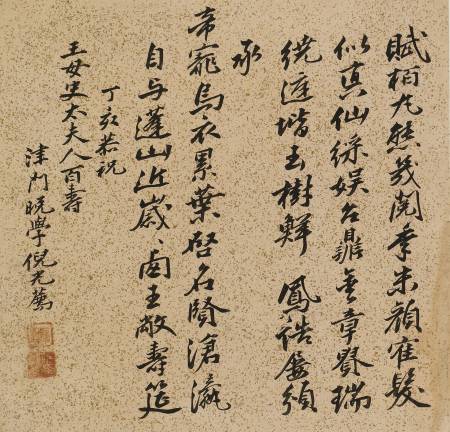 賦栢丸熊幾閱季朱顏隺髮
似真仙綵娛台鼎金章瑞
繞庭堦玉樹鮮 鳳誥屢頒
承
帝寵烏衣累葉啓名賢滄瀛
自与蓬山近歲〻西王敞壽筵
丁亥恭祝
王母史太夫人百壽
津門晩學倪光薦